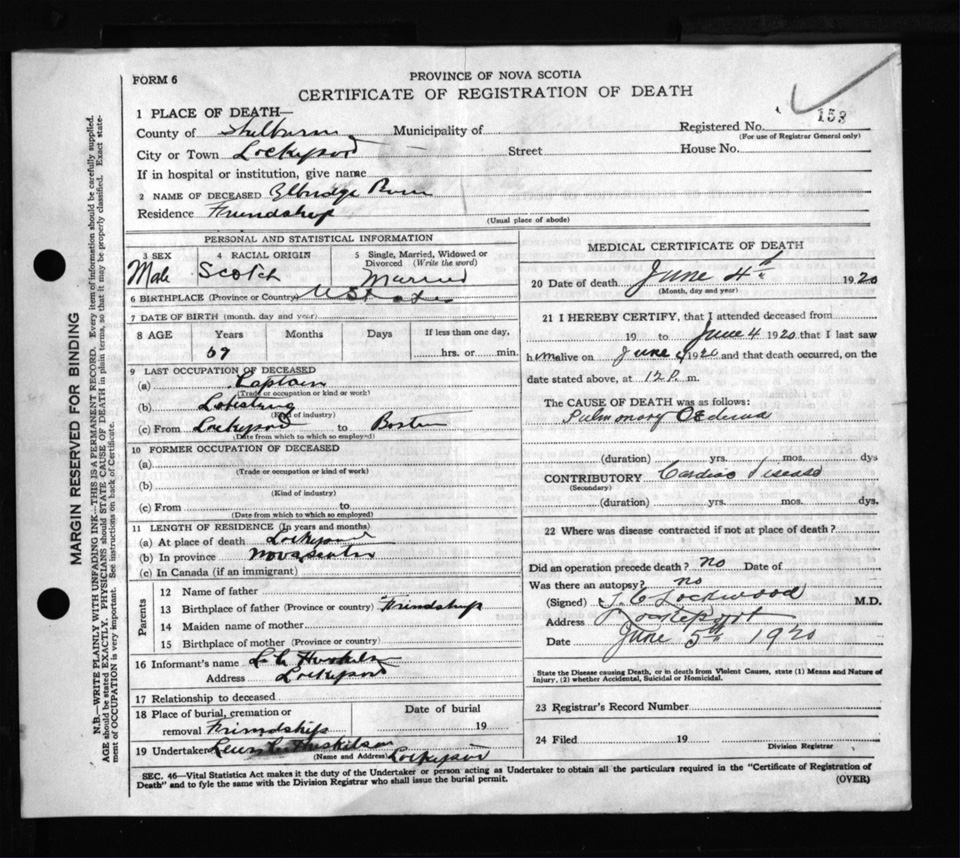 FORM 6
PROVINCE OF NOVA SCOTIA
CERTIFICATE OF REGISTRATION OF DEATH
1 PLACE OF DEATH—
County of Shelburne Municipality of
Registered No. 153
(For use of Registrar General only)
City or Town Lockeport Street House No.
If in hospital or institution, give name
2 NAME OF DECEASED Elbridge
Residence Friendship
(Usual place of abode)
PERSONAL AND STATISTICAL INFORMATION
3 SEX Male
4 RACIAL ORIGIN Scotch
5 Single, Married, Widowed or Divorced (Write the word) Married
6 BIRTHPLACE (Province or Country) U States
7 DATE OF BIRTH (month, day and year)
8 AGE Years Months Days If less than one day,
67 hrs. or min.
9 LAST OCCUPATION OF DECEASED
(a) Captain
(Trade or occupation or kind of work)
(b)
(Kind of industry)
(c) From Lockeport to Boston
(Date from which to which so employed)
10 FORMER OCCUPATION OF DECEASED
(a)
(Trade or occupation or kind of work)
(b)
(Kind of industry)
(c) From to
(Date from which to which so employed)
11 LENGTH OF RESIDENCE (In years and months)
(a) At place of death Lockeport
(b) In province Nova Scotia
(c) In Canada (if an immigrant)
Parents
12 Name of father
13 Birthplace of father (Province or country) Friendship
14 Maiden name of mother
15 Birthplace of mother (Province or country)
16 Informant's name L. C. Huskilson
Address Lockeport
17 Relationship to deceased
18 Place of burial, cremation or Date of burial
removal Friendship 19
19 Undertaker Lewis C. Huskilson Lockeport
(Name and Address)
MEDICAL CERTIFICATE OF DEATH
20 Date of death June 4th 1920
(Month, day and year)
21 I HEREBY CERTIFY, that I attended deceased from
19 to June 4 1920 that I last saw
him alive on June 4 1920 and that death occurred, on the
date stated above, at 12 P. m.
The CAUSE OF DEATH was as follows:
Pulmonary Oedema
(duration) yrs. mos. dys
CONTRIBUTORY Cardiac disease
(Secondary)
(duration) yrs. mos. dys.
22 Where was disease contracted if not at place of death?
Did an operation precede death? no Date of
Was there an autopsy? no
(Signed) Lockwood M.D.
Address Lockeport
Date June 5th 1920
State the Disease causing Death, or in death from Violent Causes, state (1) Means and Nature of
Injury, (2) whether Accidental, Suicidal or Homicidal.
23 Registrar's Record Number
24 Filed 19
Division Registrar
SEC. 46—Vital Statistics Act makes it the duty of the Undertaker or person acting as Undertaker to obtain all the particulars required in the "Certificate of Registration of
Death" and to fyle the same with the Division Registrar who shall issue the burial permit.
(OVER)
MARGIN RESERVED FOR BINDING
N.B.—WRITE PLAINLY WITH UNFADING INK—THIS IS A PERMANENT RECORD. Every item of information should be carefully supplied.
AGE should be stated EXACTLY. PHYSICIANS should STATE CAUSE OF DEATH in plain terms, so that it may be properly classified. Exact state-
ment of OCCUPATION is very important. See instructions on back of Certificate.